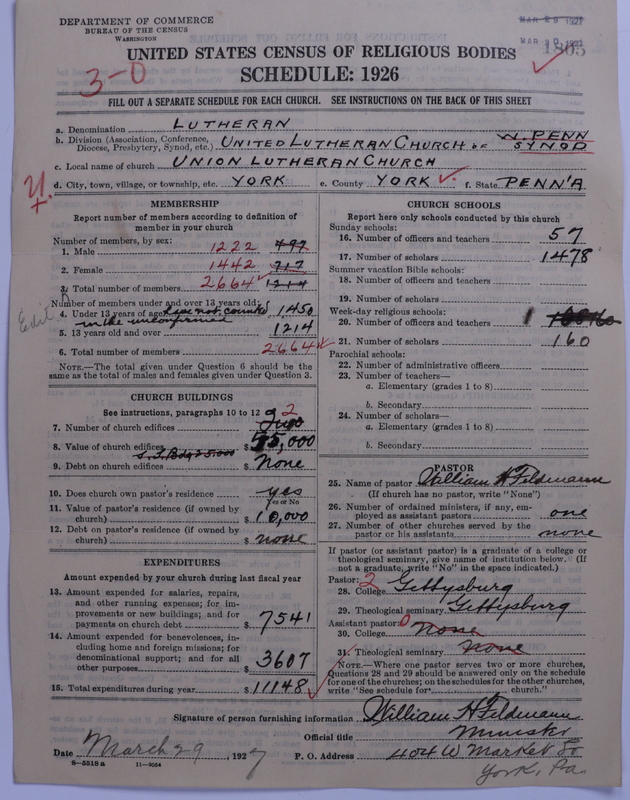 DEPARTMENT OF COMMERCE
BUREAU OF THE CENSUS
WASHINGTON
MAR 29 1927
MAR 30 1927
1805
UNITED STATES CENSUS OF RELIGIOUS BODIES
SCHEDULE: 1926
3-0
FILL OUT A SEPARATE SCHEDULE FOR EACH CHURCH. SEE INSTRUCTIONS ON THE BACK OF THIS SHEET
a. Denomination LUTHERAN
b. Division (Association, Conference, Diocese, Presbytery, Synod, etc.) UNITED LUTHERAN CHURCH OF W. PENN SYNOD
c. Local name of church UNION LUTHERAN CHURCH
d. City, town, village, or township, etc. YORK e. County YORK f. State PENN'A
MEMBERSHIP
Report number of members according to definition of member in your church
Number of members, by sex:
1. Male 1222 497
2. Female 1442 717
3. Total number of members 2664 1214
Number of members under and over 13 years old:
4. Under 13 years of age 1450
in the unconfirmed
5. 13 years old and over 1214
6. Total number of members 2664
NOTE.—The total given under Question 6 should be the same as the total of males and females given under Question 3.
Edit
CHURCH BUILDINGS
See instructions, paragraphs 10 to 12
7. Number of church edifices 2
8. Value of church edifices $ 55,000
9. Debt on church edifices $ None
10. Does church own pastor's residence yes
Yes or No
11. Value of pastor's residence (if owned by church) $ 10,000
12. Debt on pastor's residence (if owned by church) $ none
EXPENDITURES
Amount expended by your church during last fiscal year
13. Amount expended for salaries, repairs, and other running expenses; for improvements or new buildings; and for payments on church debt $ 7541
14. Amount expended for benevolences, including home and foreign missions; for denominational support; and for all other purposes $ 3607
15. Total expenditures during year $ 11148
CHURCH SCHOOLS
Report here only schools conducted by this church
Sunday schools:
16. Number of officers and teachers 57
17. Number of scholars 1478
Summer vacation Bible schools:
18. Number of officers and teachers
19. Number of scholars
Week-day religious schools:
20. Number of officers and teachers 1
21. Number of scholars 160
Parochial schools:
22. Number of administrative officers
23. Number of teachers—
a. Elementary (grades 1 to 8)
b. Secondary
24. Number of scholars—
a. Elementary (grades 1 to 8)
b. Secondary
PASTOR
25. Name of pastor William H Feldmann
(If church has no pastor, write "None")
26. Number of ordained ministers, if any, employed as assistant pastors one
27. Number of other churches served by the pastor or his assistants none
If pastor (or assistant pastor) is a graduate of a college or theological seminary, give name of institution below. (If not a graduate, write "No" in the space indicated.)
Pastor: 2
28. College Gettysburg
29. Theological seminary Gettysburg
Assistant pastor: 0
30. College None
31. Theological seminary none
NOTE.—Where one pastor serves two or more churches, Questions 28 and 29 should be answered only on the schedule for one of the churches; on the schedules for the other churches, write "See schedule for church."
Signature of person furnishing information William H Feldmann
Official title Minister
Date March 29, 1927 P. O. Address 404 W Market St
York, Pa.
8-5518a 11-9054